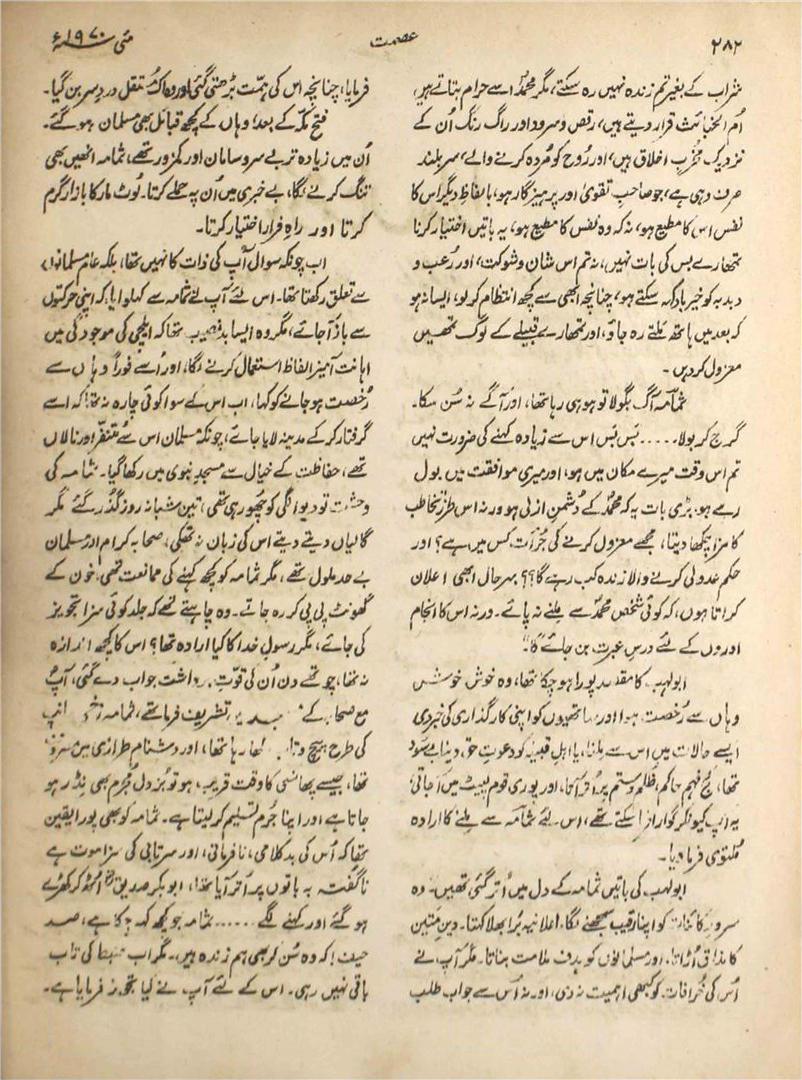 ۲۸۲
عصمت
مئی ۱۹۷۰ء
شراب کے بغیر تم زندہ نہیں رہ سکتے، مگر محمدؐ اسے حرام بتاتے ہیں،
اُم الخبائث قرار دیتے ہیں، رقص و سرود اور راگ رنگ اُن کے
نزدیک مخربِ اخلاق ہیں، اور رُوح کو مُردہ کرنے والے، سربلند
صرف وہی ہے، جو صاحبِ تقویٰ اور پرہیزگار ہو، بالفاظِ دیگر اس کا
نفس اس کا مطیع ہو، نہ کہ وہ نفس کا مطیع ہو، یہ باتیں اختیار کرنا
تمھارے بس کی بات نہیں، نہ تم اس شان و شوکت، اور رعب و
دبدبہ کو خیرباد کہہ سکتے ہو، چنانچہ ابھی سے کچھ انتظام کر لو، ایسا نہ ہو
کہ بعد میں ہاتھ ملتے رہ جاؤ، اور تمھارے قبیلے کے لوگ تمھیں
معزول کر دیں۔
ثمامہ آگ بگولا تو ہو ہی رہا تھا، اور آگے نہ سُن سکا۔
گرج کر بولا..... بَس بَس اس سے زیادہ کہنے کی ضرورت نہیں
تم اس وقت میرے مکان میں ہو، اور میری موافقت میں بول
رہے ہو، بڑی بات یہ کہ محمدؐ کے دُشمنِ ازلی ہو ورنہ اس طرزِ تخاطب
کا مزا چکھا دیتا، مجھے معزول کرنے کی جُرأت کس میں ہے؟ اور
حکم عدولی کرنے والا زندہ کب رہے گا؟؟ بہرحال ابھی اعلان
کراتا ہوں، کہ کوئی شخص محمدؐ سے ملنے نہ پائے۔ ورنہ اس کا انجام
اوروں کے لئے درسِ عبرت بن جائے گا"۔
ابولہب کا مقصد پورا ہو چکا تھا، وہ خوش خوش
وہاں سے رُخصت ہوا اور ساتھیوں کو اپنی کارگذاری کی خبر دی
ایسے حالات میں اس سے ملنا، یا اہلِ قبیلہ کو دعوتِ حق دینا بے سود
تھا، کج فہم حاکم، ظلم و ستم پر اُتر آتا، اور پوری قوم لپیٹ میں آ جاتی
یہ آپ کیونکر گوارا کر سکتے تھے، اس لئے ثمامہ سے ملنے کا ارادہ
مُلتوی فرما دیا۔
ابولہب کی باتیں ثمامہ کے دل میں اُتر گئی تھیں۔ وہ
سرورِ کائنات کو اپنا رقیب سمجھنے لگا، اعلانیہ بُرا بھلا کہتا۔ دینِ متین
کا مذاق اُڑاتا۔ اور مسلمانوں کو ہدفِ ملامت بناتا۔ مگر آپ نے
اُس کی خُرافات کو کبھی اہمیت نہ دی، اور نہ اُس سے جواب طلب
فرمایا، چنانچہ اس کی ہمّت بڑھتی گئی اور وہ اک مُستقل دردِ سر بن گیا۔
فتح مکّہ کے بعد، وہاں کے کچھ قبائل بھی مسلمان ہو گئے۔
اُن میں زیادہ تر بے سر و سامان اور کمزور تھے، ثمامہ انھیں بھی
تنگ کرنے لگا، بے خبری میں اُن پہ حملے کرتا۔ لُوٹ مار کا بازار گرم
کرتا اور راہِ فرار اختیار کرتا۔
اب چونکہ سوال آپ کی ذات کا نہیں تھا، بلکہ عام مسلمانوں
سے تعلق رکھتا تھا۔ اس لئے آپ نے ثمامہ سے کہلوایا، کہ اپنی حرکتوں
سے باز آ جائے، مگر وہ ایسا بدنصیب تھا کہ ایلچی کی موجودگی میں
اہانت آمیز الفاظ استعمال کرنے لگا، اور اُسے فوراً وہاں سے
رُخصت ہو جانے کو کہا، اب اس کے سوا کوئی چارہ نہ تھا کہ اسے
گرفتار کر کے مدینہ لایا جائے، چونکہ مسلمان اس سے مُتنفر اور نالاں
تھے، حفاظت کے خیال سے مسجدِ نبوی میں رکھا گیا۔ ثمامہ کی
وحشت تو دیوانگی کو چھو رہی تھی، تین شبانہ روز گذر گئے مگر
گالیاں دیتے دیتے اس کی زبان نہ تھکی، صحابہ کرام اور مسلمان
بے حد ملول تھے، مگر ثمامہ کو کچھ کہنے کی ممانعت تھی۔ خون کے
گھونٹ پی پی کر رہ جاتے۔ وہ چاہتے تھے کہ جلد کوئی سزا تجویز
کی جائے، مگر رسولِ خدا کا کیا ارادہ تھا؟ اس کا کچھ اندازہ
نہ تھا، چوتھے دن اُن کی قوّتِ برداشت جواب دے گئی، آپؐ
مع صحابہ کے تشریف فرما تھے، ثمامہ سانپ
کی طرح پیچ و تاب کھا رہا تھا، اور دشنام طرازی میں مصروف
تھا، جیسے پھانسی کا وقت قریب ہو تو بُزدل مُجرم بھی نِڈر ہو
جاتا ہے اور اپنا جُرم تسلیم کر لیتا ہے۔ ثمامہ کو بھی پورا یقین
تھا کہ اُس کی بدکلامی، نافرمانی، اور سرتابی کی سزا موت ہے
ناگفتہ بہ باتوں پر اُتر آیا تھا، ابوبکر صدیقؓ اُٹھ کر کھڑے
ہو گئے اور کہنے لگے...... ثمامہ جو کچھ کہہ چکا ہے، صد
حیف! کہ وہ سُن کر بھی ہم زندہ ہیں۔ مگر اب سننے کی تاب
باقی نہیں رہی۔ اس کے لئے آپ نے کیا تجویز فرمایا ہے۔